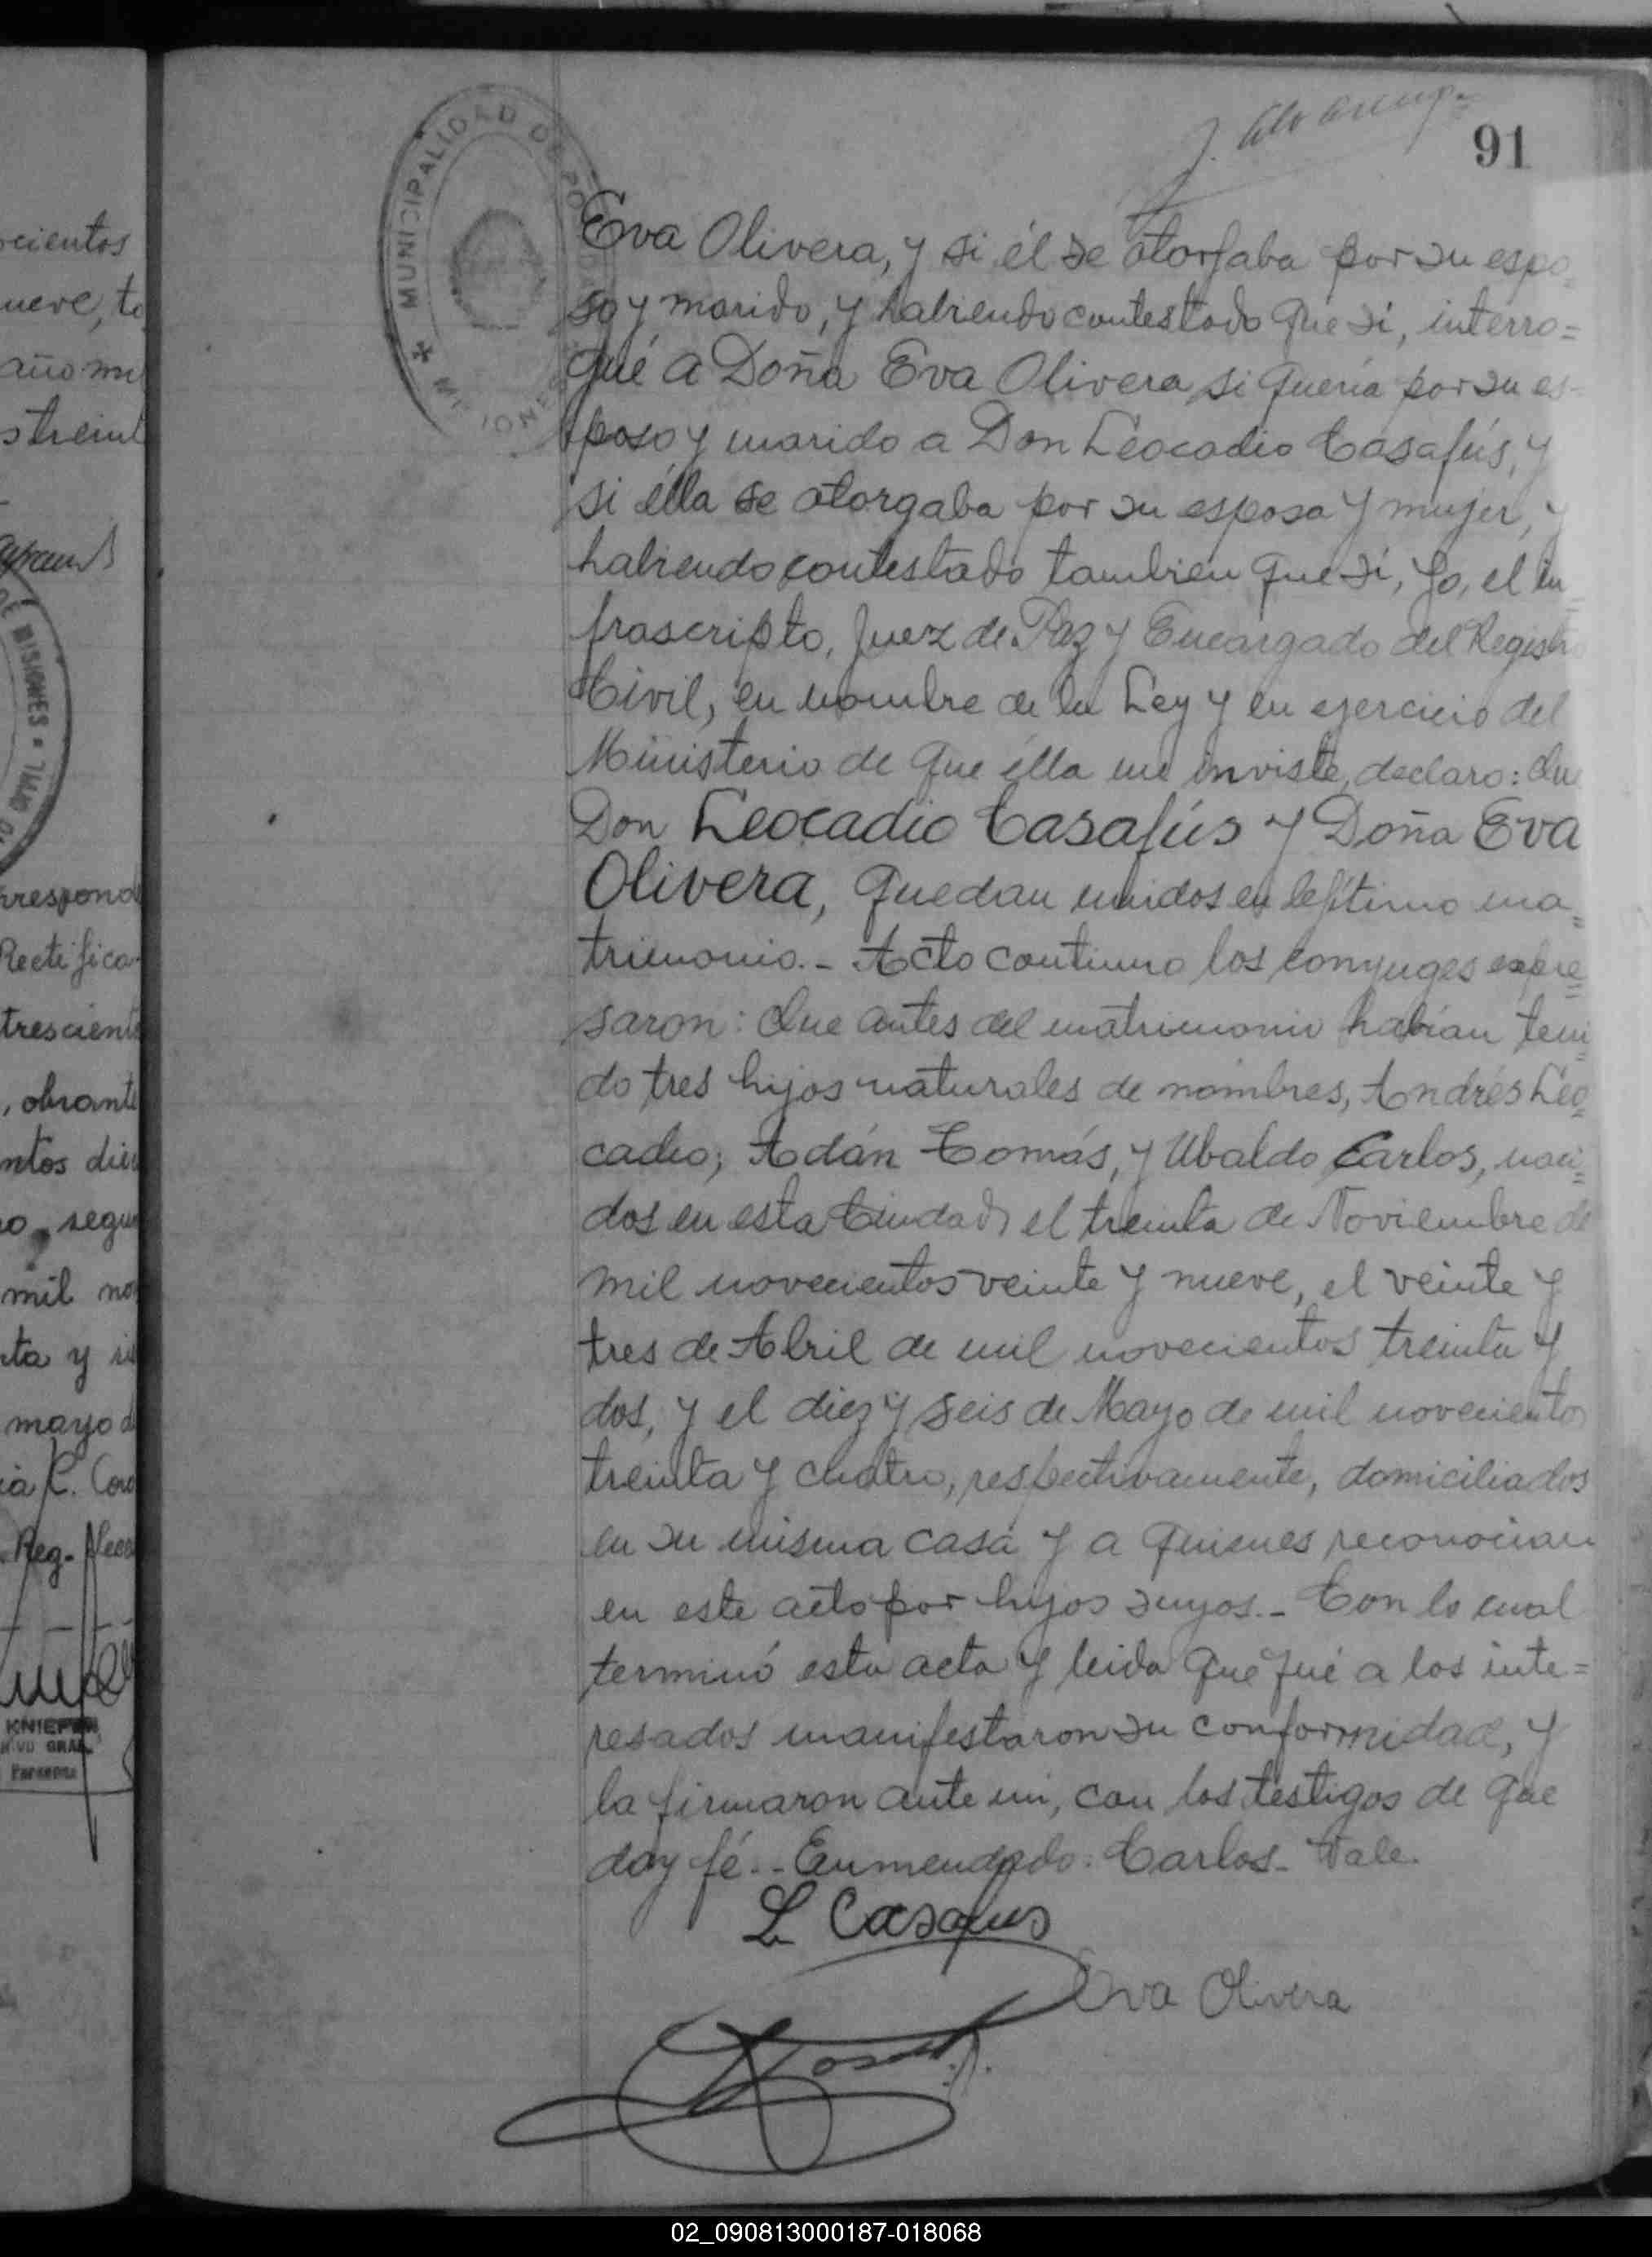 cientos
ueve, to
año mi
s treint
DE MISIONES
respond
Rectifica
trescient
, obrante
ntos die
o, segun
mil no
ta y si
mayo d
ia C. Coro
Reg.
KNIEPER
GRAL.
Personas
MUNICIPALIDAD DE POSADAS
MISIONES
91
Eva Olivera, y si él se otorgaba por su espo-
so y marido, y habiendo contestado que si, interro=
gué a Doña Eva Olivera si quería por su es-
poso y marido a Don Leocadio Casafús, y
si élla se otorgaba por su esposa y mujer, y
habiendo contestado tambien que sí, yo, el in-
frascripto, Juez de Paz y Encargado del Registro
Civil, en nombre de la Ley y en ejercicio del
Ministerio de que élla me inviste, declaro: Que
Don Leocadio Casafús y Doña Eva
Olivera, quedan unidos en lefítimo ma=
trimonio.- Acto continuo los conyuges expre=
saron: Que antes del matrimonio habían teni=
do tres hijos naturales de nombres, Andrés Leo=
cadio; Adán Tomás, y Ubaldo Carlos, naci=
dos en esta Ciudad, el treinta de Noviembre de
mil novecientos veinte y nueve, el veinte y
tres de Abril de mil novecientos treinta y
dos, y el diez y seis de Mayo de mil novecientos
treinta y cuatro, respectivamente, domiciliados
en su misma casa y a quienes reconocian
en este acto por hijos suyos.- Con lo cual
terminó esta acta y leida que fué a los inte=
resados manifestaron su conformidad, y
la firmaron ante mi, con los testigos de que
doy fé.- Enmendado: Carlos- Vale.
L Casafus
Eva Olivera
02_090813000187-018068